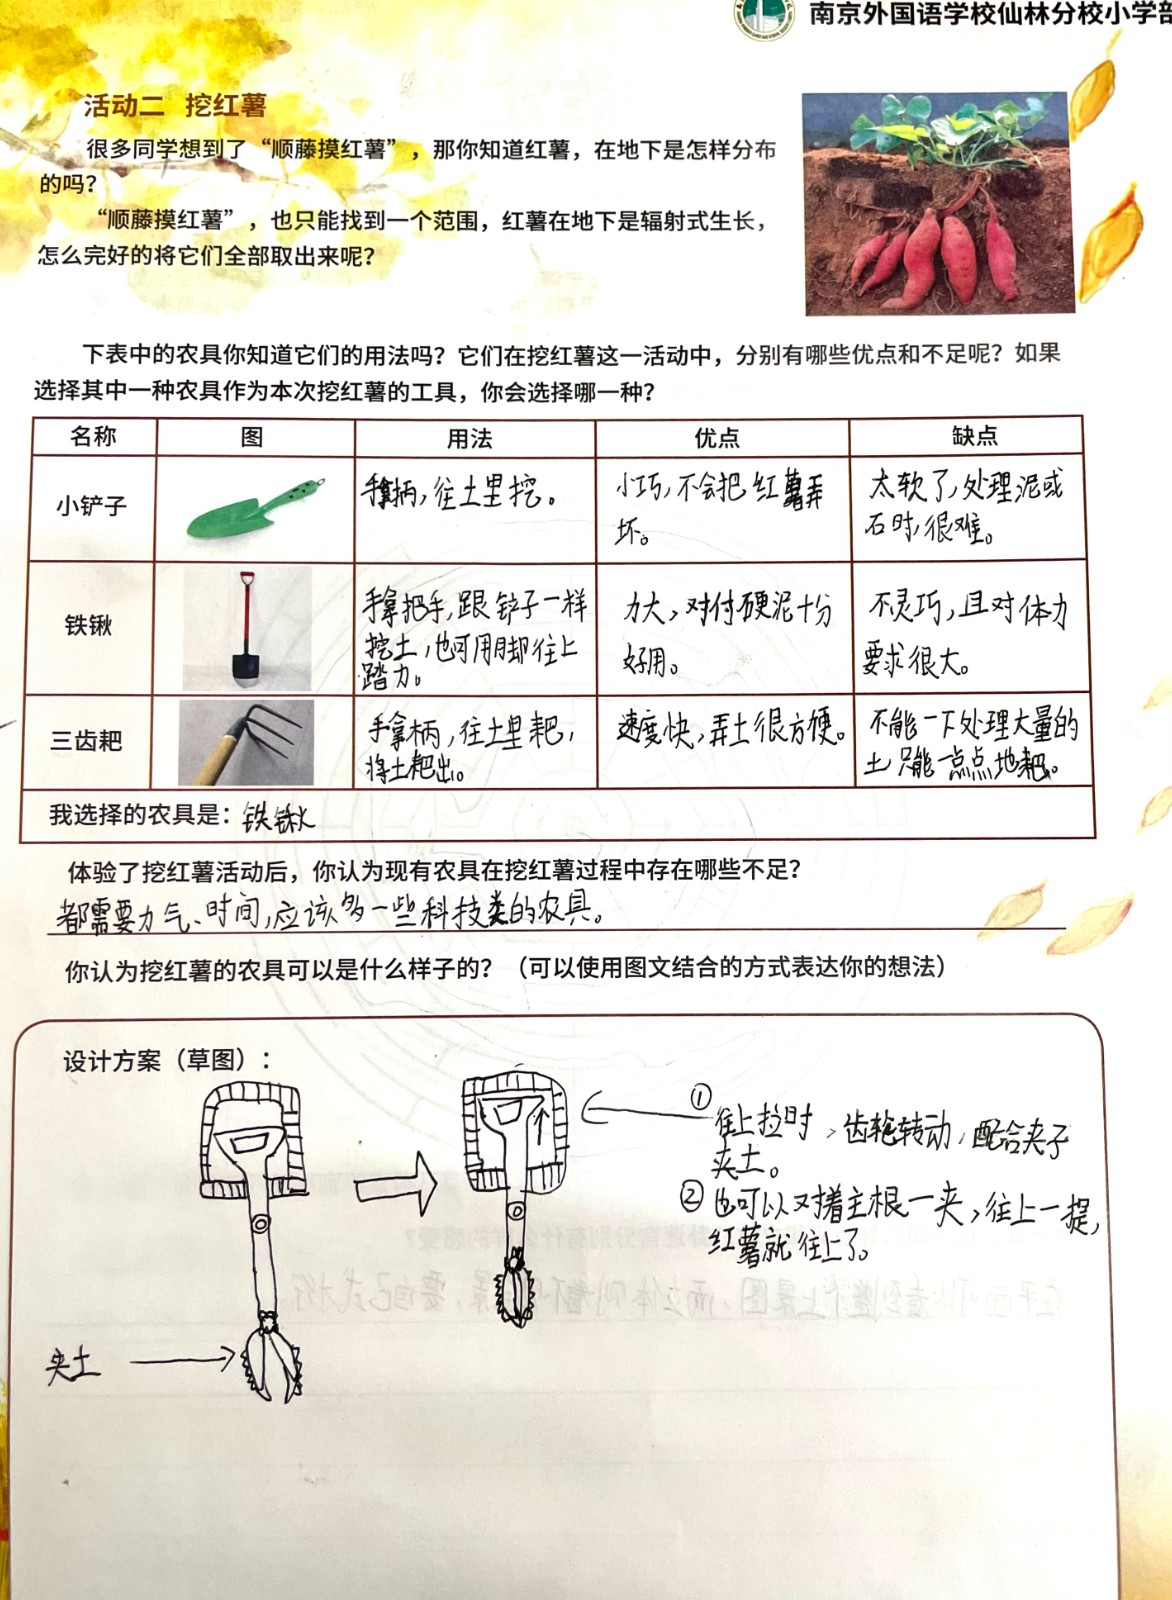 南京外国语学校仙林分校小学部
活动二 挖红薯
很多同学想到了“顺藤摸红薯”，那你知道红薯，在地下是怎样分布
的吗？
“顺藤摸红薯”，也只能找到一个范围，红薯在地下是辐射式生长，
怎么完好的将它们全部取出来呢？
下表中的农具你知道它们的用法吗？它们在挖红薯这一活动中，分别有哪些优点和不足呢？如果
选择其中一种农具作为本次挖红薯的工具，你会选择哪一种？
名称 图 用法 优点 缺点
小铲子
手拿柄，往土里挖。
小巧，不会把红薯弄
坏。
太软了，处理泥或
石时，很难。
铁锹
手拿把手，跟铲子一样
挖土，也可用脚往上
踏力。
力大，对付硬泥十分
好用。
不灵巧，且对体力
要求很大。
三齿耙
手拿柄，往土里耙，
将土耙出。
速度快，弄土很方便。
不能一下处理大量的
土只能一点点地耙。
我选择的农具是：铁锹
体验了挖红薯活动后，你认为现有农具在挖红薯过程中存在哪些不足？
都需要力气、时间，应该多一些科技类的农具。
你认为挖红薯的农具可以是什么样子的？（可以使用图文结合的方式表达你的想法）
设计方案（草图）：
①往上拉时，齿轮转动，配合夹子
夹土。
②也可以对着主根一夹，往上一提，
红薯就往上了。
夹土